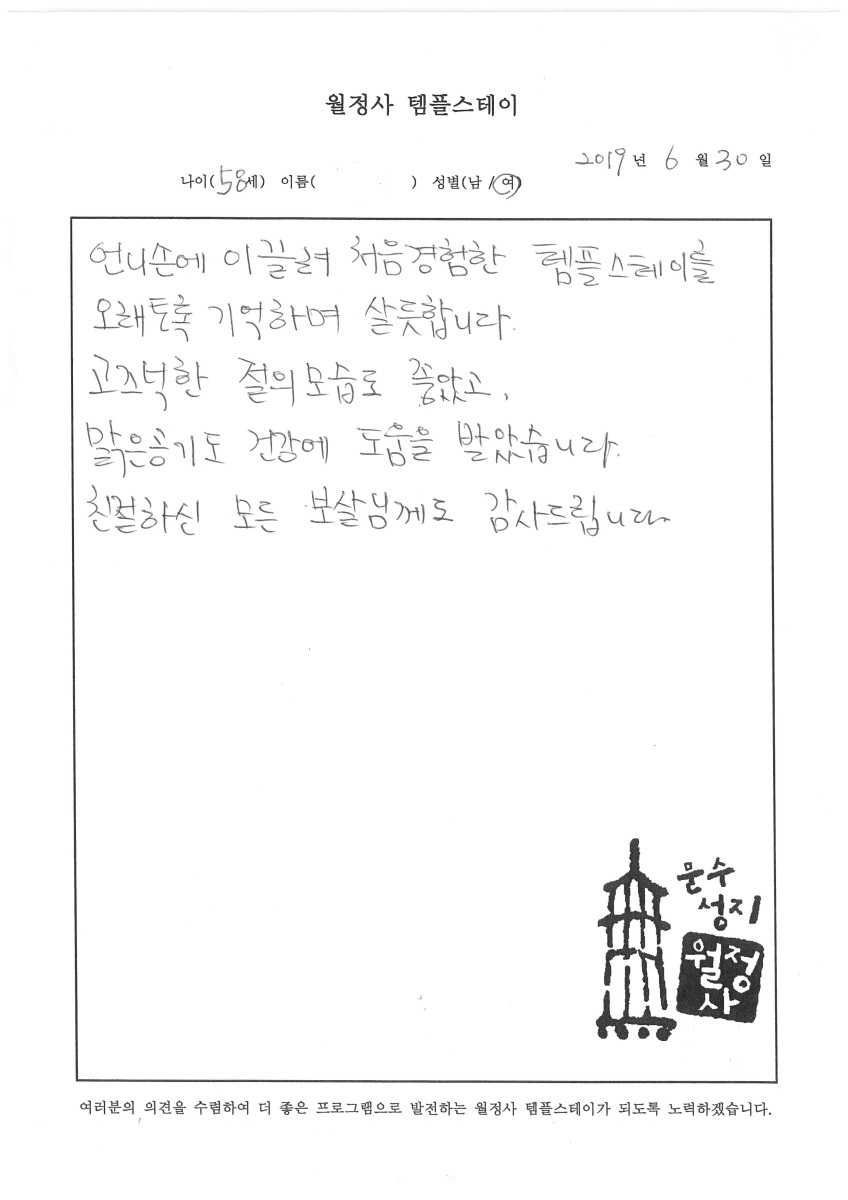 월정사 템플스테이
2019 년 6 월 30 일
나이(58세) 이름( ) 성별(남 / 여)
언니손에 이끌려 처음경험한 템플스테이를
오래토록 기억하며 살듯합니다.
고즈넉한 절의모습로 좋았고,
맑은공기도 건강에 도움을 받았습니다.
친절하신 모든 보살님께도 감사드립니다.
문수
성지
월정
사
여러분의 의견을 수렴하여 더 좋은 프로그램으로 발전하는 월정사 템플스테이가 되도록 노력하겠습니다.